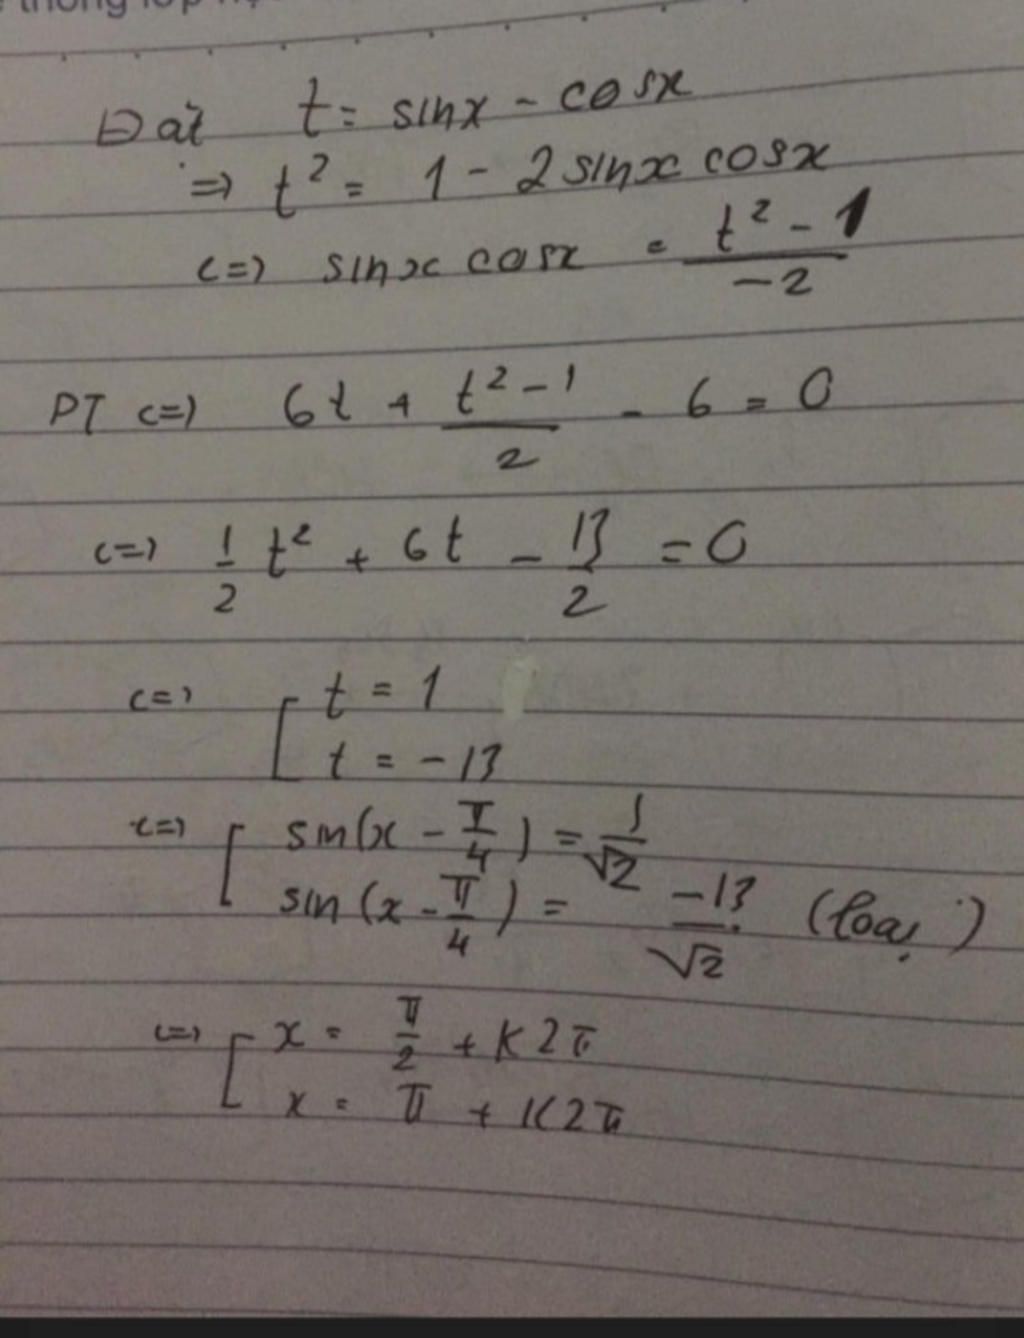 Đặt t = sinx - cosx
=> t² = 1 - 2sinx cosx
<=> sinx cosx = \frac{t² - 1}{-2}
PT <=> 6t + \frac{t² - 1}{2} - 6 = 0
<=> \frac{1}{2} t² + 6t - \frac{13}{2} = 0
<=> [ t = 1
t = -13
<=> [ sin(x - \frac{π}{4}) = \frac{1}{√2}
sin(x - \frac{π}{4}) = \frac{-13}{√2} (loại)
<=> [ x = \frac{π}{2} + K2π
x = π + K2π